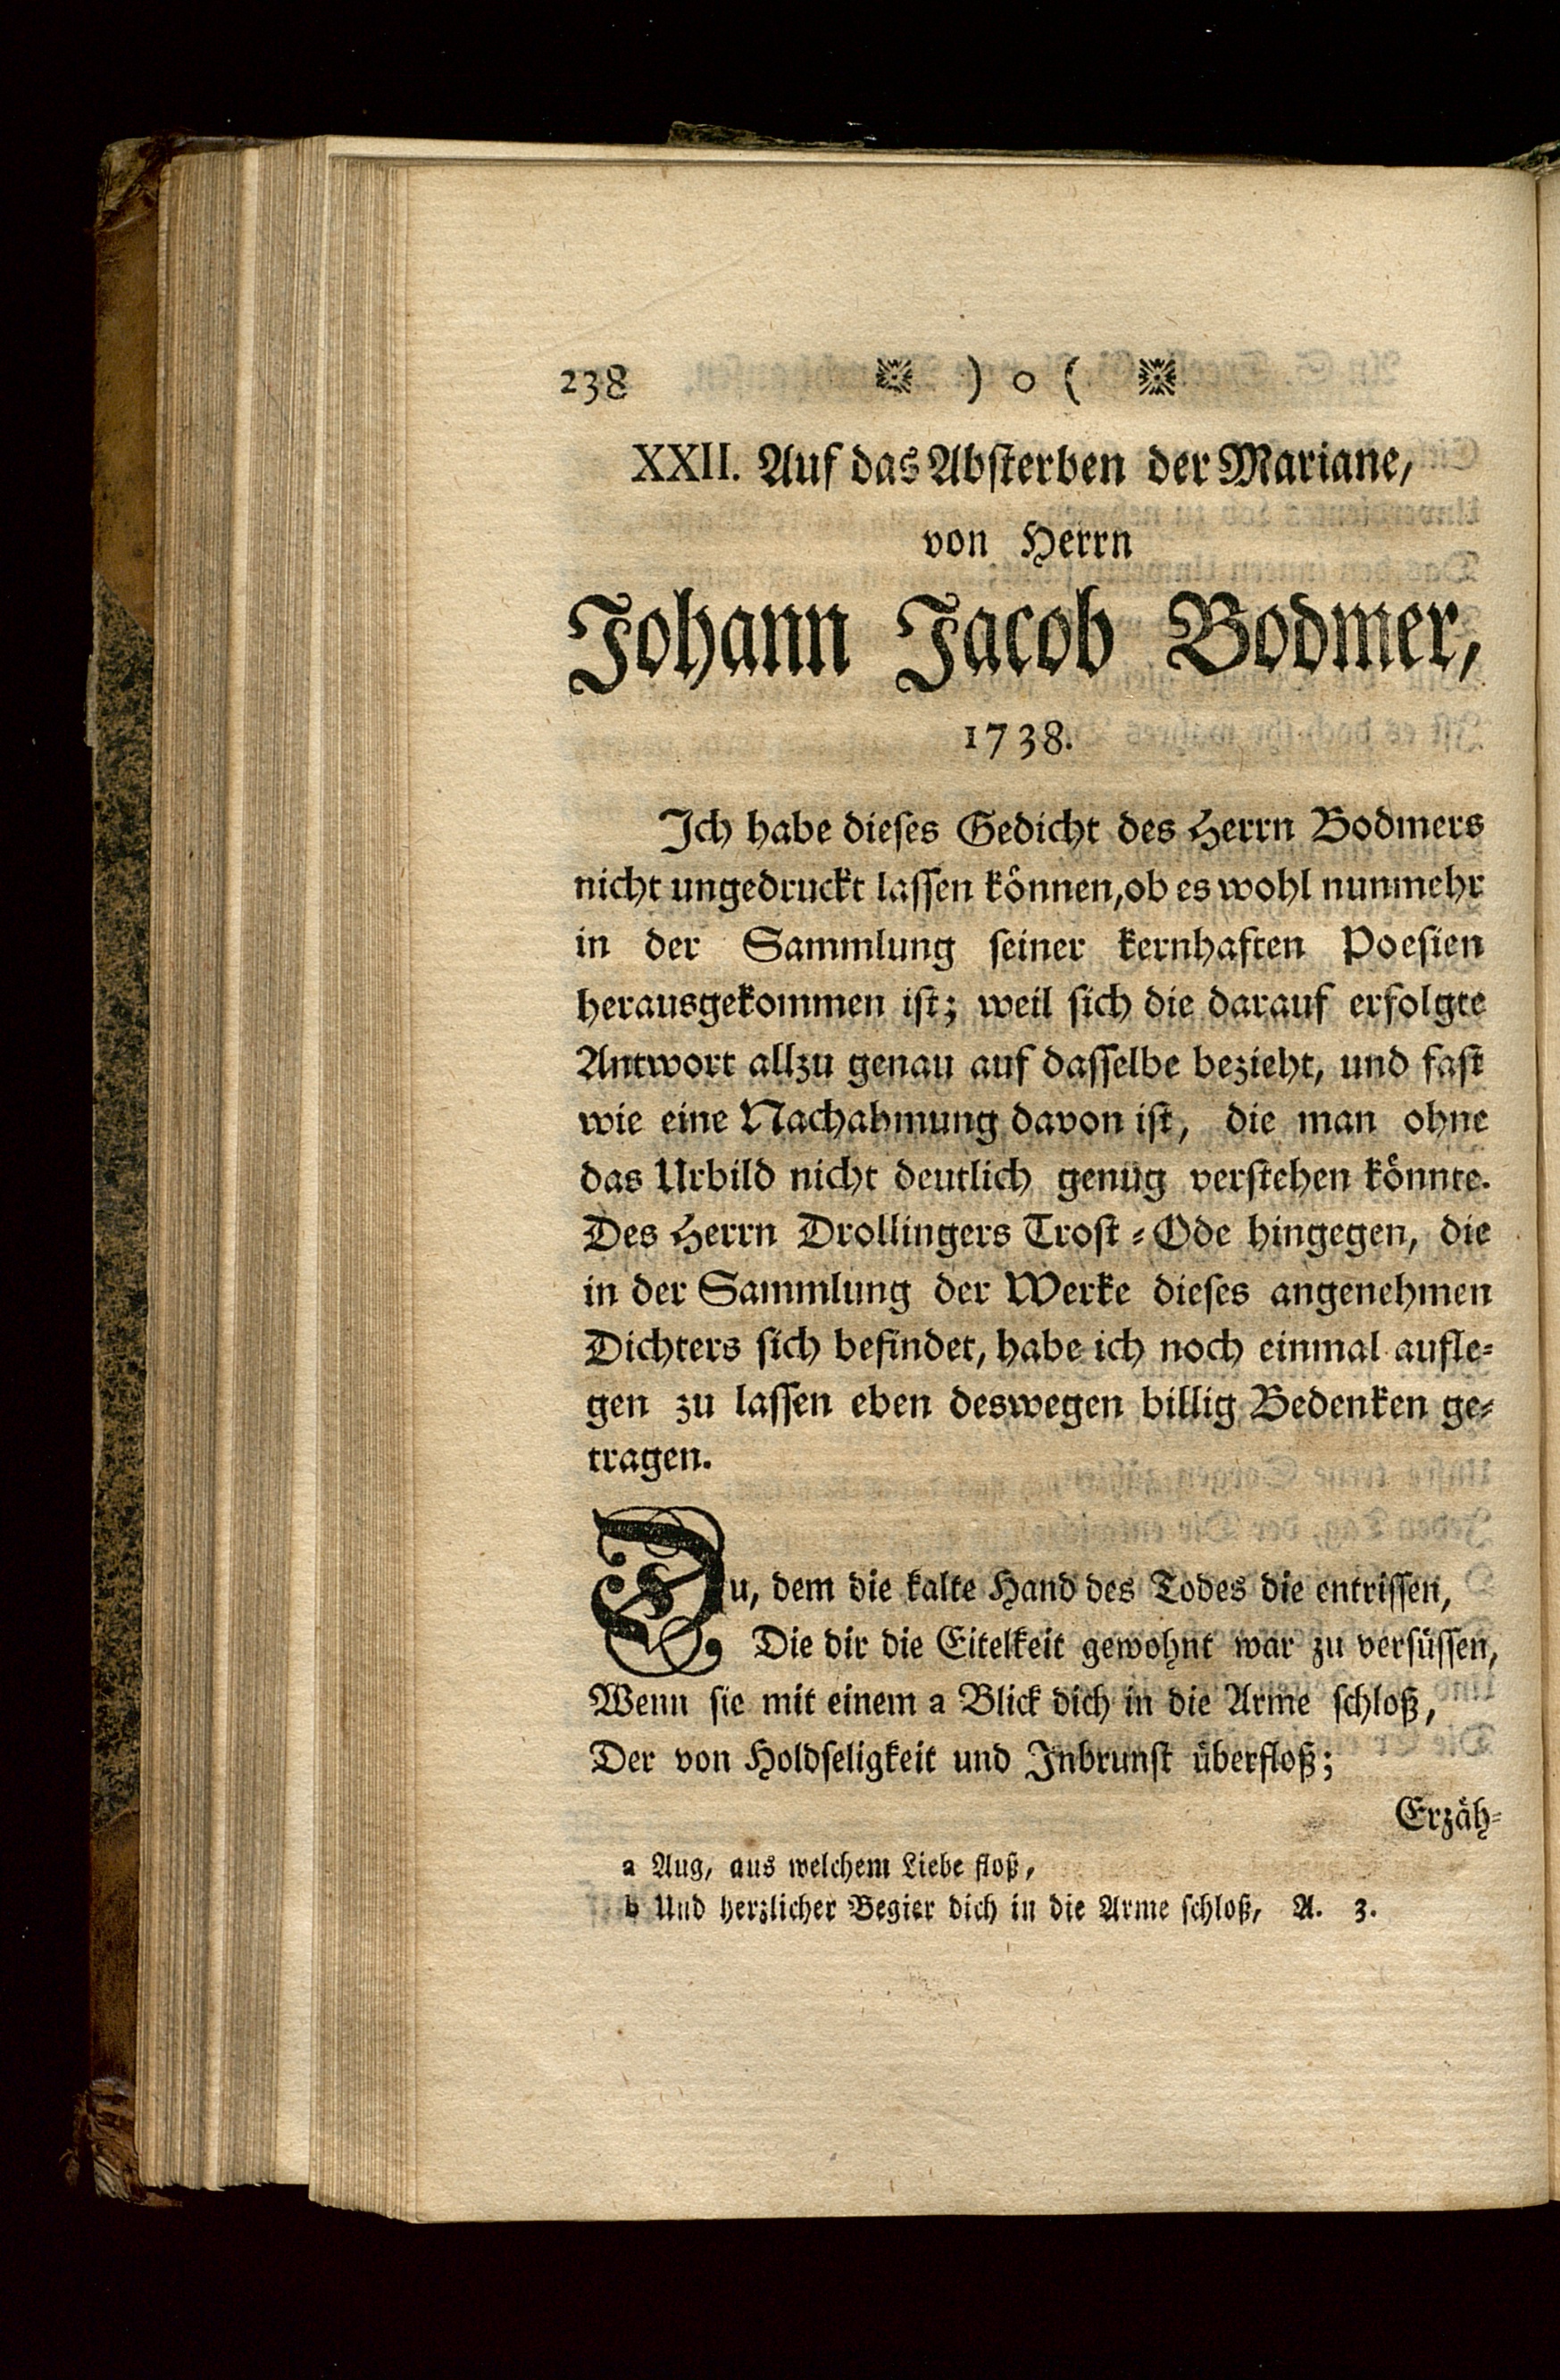 238 ※ ) o ( ※
XXII. Auf das Absterben der Mariane,
von Herrn
Johann Jacob Bodmer,
1738.
Ich habe dieses Gedicht des Herrn Bodmers
nicht ungedruckt lassen können, ob es wohl nunmehr
in der Sammlung seiner kernhaften Poesien
herausgekommen ist; weil sich die darauf erfolgte
Antwort allzu genau auf dasselbe bezieht, und fast
wie eine Nachahmung davon ist, die man ohne
das Urbild nicht deutlich genug verstehen könnte.
Des Herrn Drollingers Trost-Ode hingegen, die
in der Sammlung der Werke dieses angenehmen
Dichters sich befindet, habe ich noch einmal aufle-
gen zu lassen eben deswegen billig Bedenken ge-
tragen.
Du, dem die kalte Hand des Todes die entrissen,
Die dir die Eitelkeit gewohnt war zu versüssen,
Wenn sie mit einem a Blick dich in die Arme schloß,
Der von Holdseligkeit und Inbrunst überfloß;
Erzäh-
a Aug, aus welchem Liebe floß,
b Und herzlicher Begier dich in die Arme schloß, A. 3.